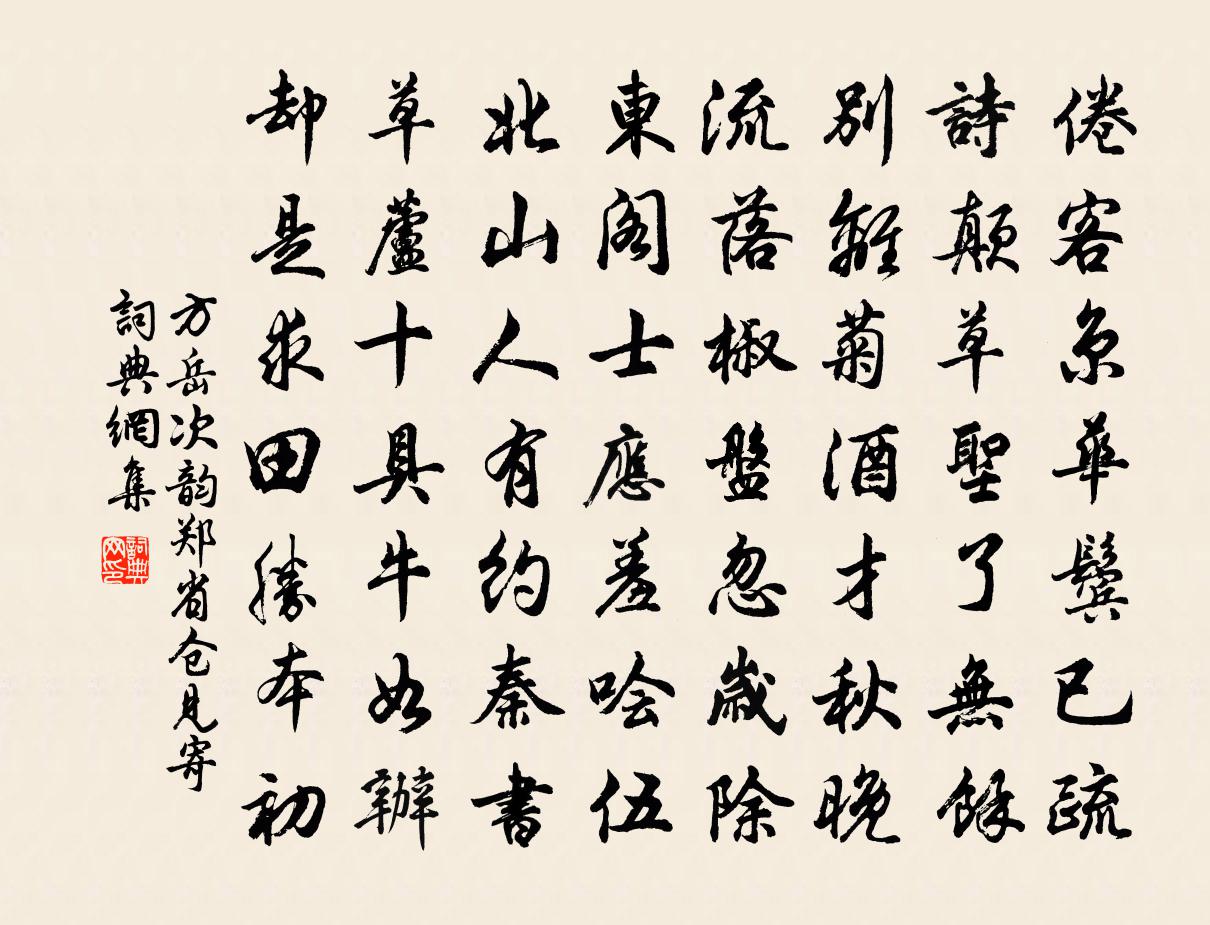 倦客京華鬓已疏
詩顛草聖了無餘
別離菊酒才秋晚
流落椒盤忽歲除
東閣士應羞噲伍
北山人有約秦書
草蘆十具牛如辦
却是求田勝本初
方岳次韵郑省仓见寄
詞典網集
詞典网印